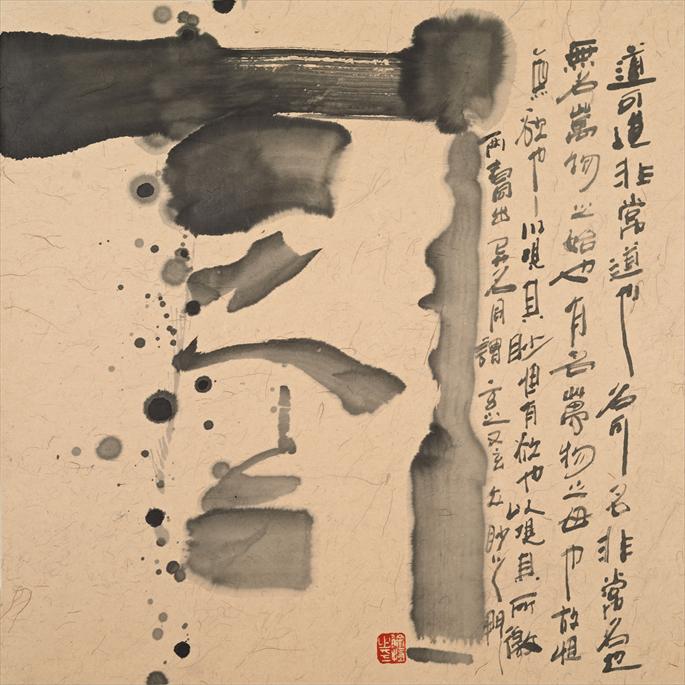 道可道非常道也名可名非常名也
無名萬物之始也有名萬物之母也故恒
無欲也以觀其眇恒有欲也以觀其所徼
兩者同出異名同謂玄之又玄衆眇之門